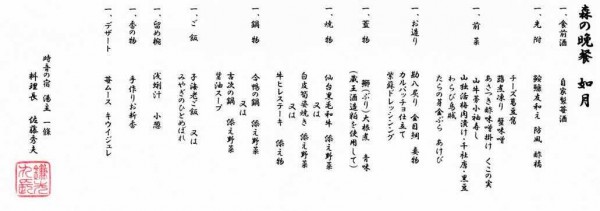 森の晩餐　如月
一、食前酒　自家製苺酒
一、先附　鮟鱇友和え　防風　酢橘
一、前菜　チーズ葛豆腐
鶏煮凍り　蟹味噌
あさつき酢味噌掛け　くこの実
山牛蒡小袖寿し
山独活梅肉漬け・千社唐・黒豆
わらび烏賊
たらの芽金ぷら　あけび
一、お造り　勘八炙り　金目鯛　妻物
カルパッチョ仕立て
紫蘇ドレッシング
一、蓋物　鰤(ぶり)大根煮　青味
(蔵王酒造粕を使用して)
一、焼物　仙台黒毛和牛　添え野菜
又は
白皮筍姿焼き　添え野菜
又は
牛ヒレステーキ　添え物
一、鍋物　合鴨の鍋　添え野菜
又は
吉次の鍋　添え野菜
醤油スープ
一、ご飯　子海老ご飯　又は
みやぎのひとめぼれ
一、留め椀　浅蜊汁　小葱
一、香の物　手作りお新香
一、デザート　苺ムース　キウイジュレ
時音の宿　湯主　一條
料理長　佐藤秀夫